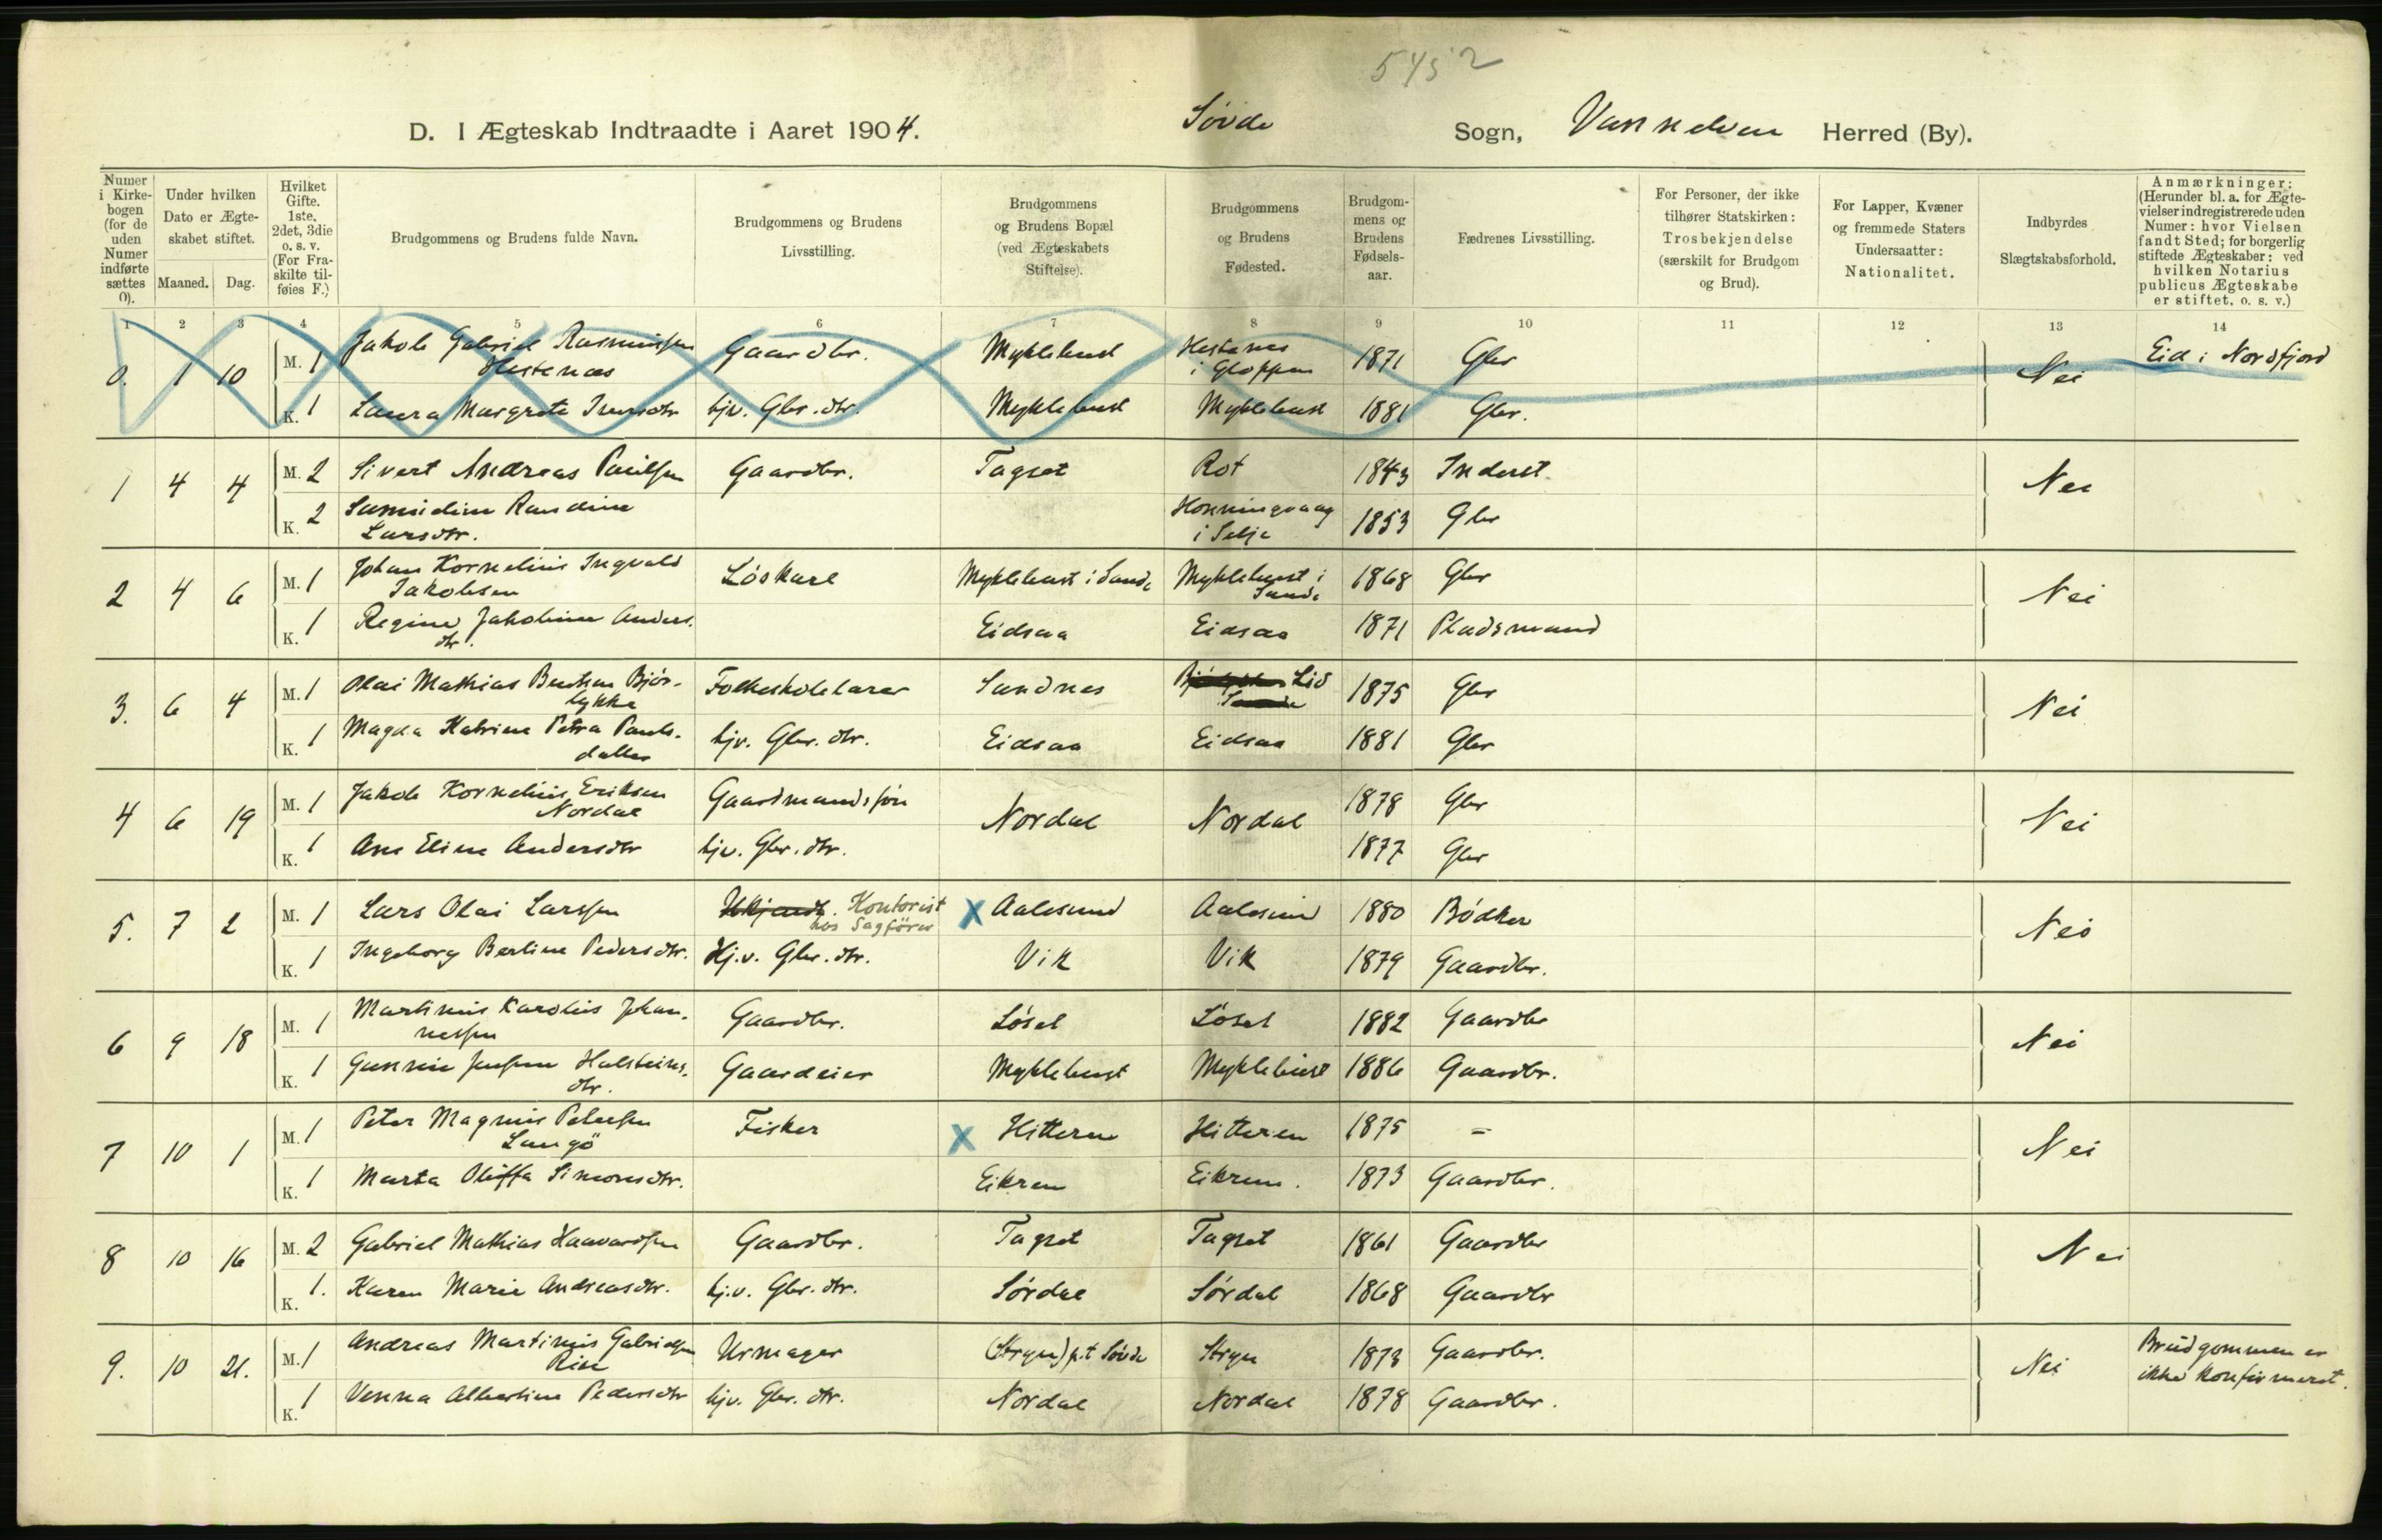 5452
D. I Ægteskab Indtraadte i Aaret 1904. Søvde Sogn, Vannelven Herred (By).
Numer i Kirkebogen (for de uden Numer indførte sættes 0). | Under hvilken Dato er Ægteskabet stiftet. Maaned. Dag. | Hvilket Gifte. 1ste, 2det, 3die o. s. v. (For Fraskilte tilføies F.) | Brudgommens og Brudens fulde Navn. | Brudgommens og Brudens Livsstilling. | Brudgommens og Brudens Bopæl (ved Ægteskabets Stiftelse). | Brudgommens og Brudens Fødested. | Brudgommens og Brudens Fødselsaar. | Fædrenes Livsstilling. | For Personer, der ikke tilhører Statskirken: Trosbekjendelse (særskilt for Brudgom og Brud). | For Lapper, Kvæner og fremmede Staters Undersaatter: Nationalitet. | Indbyrdes Slægtskabsforhold. | Anmærkninger: (Herunder bl. a. for Ægtevielser indregistrerede uden Numer: hvor Vielsen fandt Sted; for borgerlig stiftede Ægteskaber: ved hvilken Notarius publicus Ægteskabe er stiftet, o. s. v.)
1 2 3 4 5 6 7 8 9 10 11 12 13 14
0. 1 10 M. 1 Jakob Gabriel Rasmussen Hestenæs Gaardbr. Myklebust Hestenes i Gloppen 1871 Gbr Nei Eid i Nordfjord
K. 1 Laura Margrete Iversdtr hjv. Gbr. dtr. Myklebust Myklebust 1881 Gbr.
1 4 4 M. 2 Sivert Andreas Paulsen Gaardbr. Tagset Rot 1843 Inderst Nei
K. 2 Samueline Randine Larsdtr. Honningvaag i Selje 1853 Gbr
2 4 6 M. 1 Johan Kornelius Ingvald Jakobsen Løskarl Myklebust i Sande Myklebust i Sande 1868 Gbr Nei
K. 1 Regine Jakobine Anders. dtr. Eidsaa Eidsaa 1871 Pladsmand
3. 6 4 M. 1 Olai Mathias Bentsen Bjørlykke Folkeskolelærer Sandnes Lid 1875 Gbr Nei
K. 1 Magda Katrine Petra Paulsdatter hjv. Gbr. dtr. Eidsaa Eidsaa 1881 Gbr
4 6 19 M. 1 Jakob Kornelius Eriksen Nordal Gaardmandssøn Nordal Nordal 1878 Gbr Nei
K. 1 Ane Eline Andersdtr hjv. Gbr. dtr. 1877 Gbr
5. 7 2 M. 1 Lars Olai Larssen Ukjendt. Kontorist hos Sagfører X Aalesund Aalesund 1880 Bødker Nei
K. 1 Ingeborg Berline Pedersdtr. Hj.v. Gbr. dtr. Vik Vik 1879 Gaardbr.
6 9 18 M. 1 Martinus Karolius Johannessen Gaardbr. Løset Løset 1882 Gaardbr Nei
K. 1 Gunnie Halsteinsdtr. Gaardeier Myklebust Myklebust 1886 Gaardbr.
7 10 1 M. 1 Peter Magnus Petersen Langö Fisker X Hitteren Hitteren 1875 = Nei
K. 1 Marta Oliffa Simonsdtr. Eikrem Eikrem. 1873 Gaardbr.
8 10 16 M. 2 Gabriel Mathias Haavardsen Gaardbr. Tagset Tagset 1861 Gaardbr Nei
K. 1. Karen Marie Andreasdtr. hj.v. Gbr. dtr. Sørdal Sørdal 1868 Gaardbr
9. 10 21. M. 1 Andreas Martinus Gabrielsen Rise Urmager (Stryn) p.t. Søvde Stryn 1873 Gaardbr. Nei Brudgommen er ikke konfirmeret.
K. 1 Venna Albertine Pedersdtr hjv. Gbr. dtr. Nordal Nordal 1878 Gaardbr.